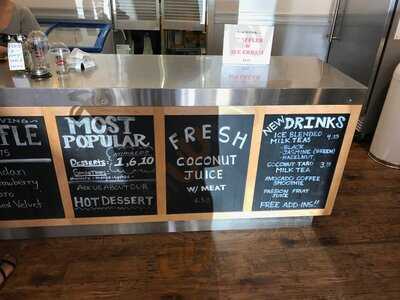 WAFFLER
ICE CREAM
FFLE
MOST
POPULAR
DESSERTS: 1,6,10
ASK US ABOUT OUR
HOT DESSERT
FRESH
COCONUT
JUICE
W/ MEAT
NEW DRINKS
ICE BLENDED
MILK TEAS
- BLACK
- JASMINE (GREEN)
- HAZELNUT
COCONUT TARO
MILK TEA
AVOCADO COFFEE
SMOOTHIE
PASSION FRUIT
JUICE
FREE ADD-INS!!
Red Velvet